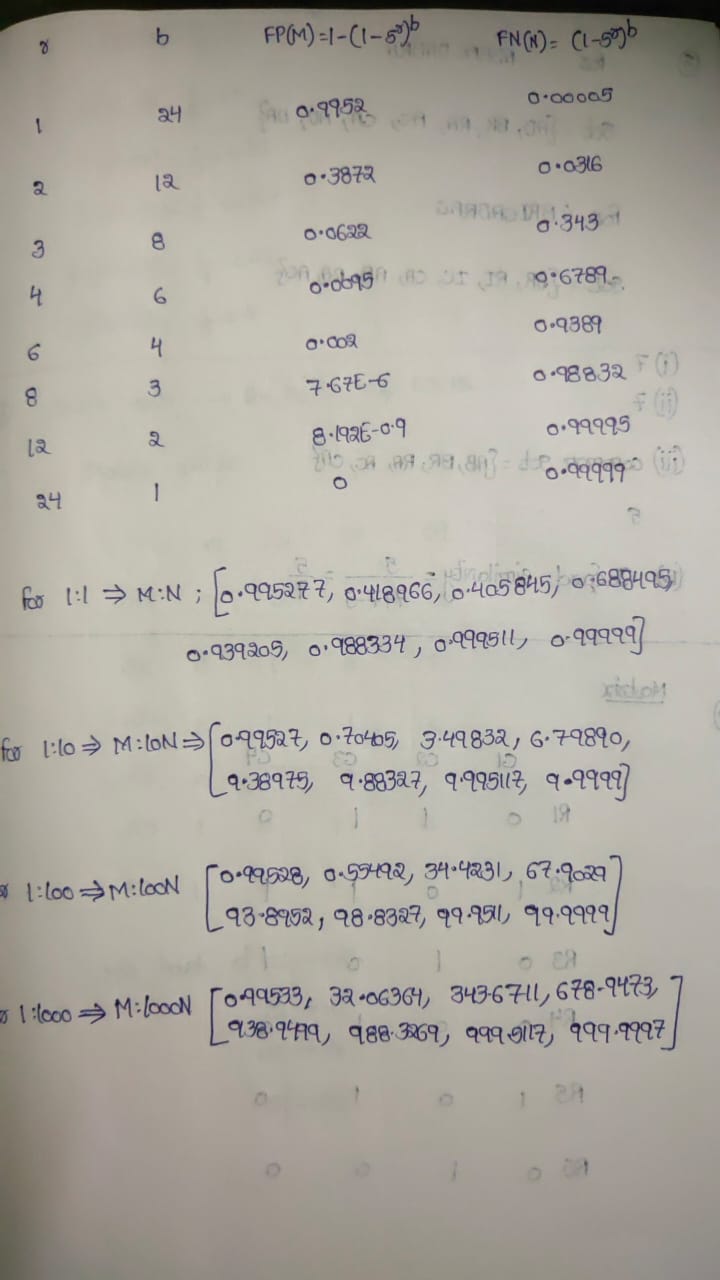 r b FP(M)=1-(1-s^r)^b FN(N)= (1-s^r)^b
1 24 0.9952 0.00005
2 12 0.3872 0.0316
3 8 0.0622 0.343
4 6 0.0095 0.6789
6 4 0.002 0.9389
8 3 7.67E-6 0.98832
12 2 8.192E-0.9 0.99995
24 1 0 0.99999
for 1:1 ⇒ M:N ; [0.995277, 0.418966, 0.405845, 0.688495,
0.939205, 0.988334, 0.999511, 0.99999]
for 1:10 ⇒ M:10N ⇒ [0.99527, 0.70405, 3.49832, 6.79890,
9.38975, 9.88327, 9.995117, 9.9999]
1:100 ⇒ M:100N [0.99528, 0.55492, 34.4231, 67.9029
93.8952, 98.8327, 99.951, 99.9999]
1:1000 ⇒ M:1000N [0.99533, 32.06364, 343.6711, 678.9473,
938.9499, 988.3269, 999.5117, 999.9997]